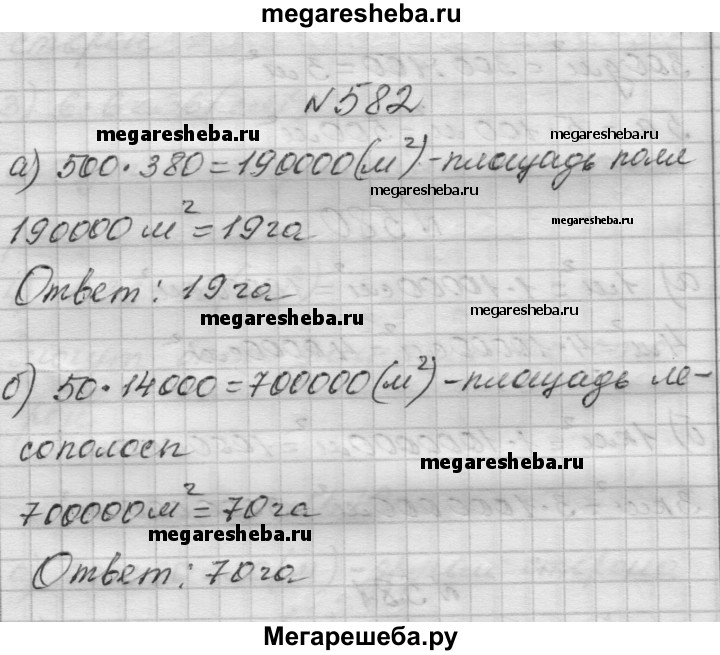 megaresheba.ru
№582
megaresheba.ru
megaresheba.ru
а) 500·380=190000(м²)-площадь поля
megaresheba.ru
190000м²=19га
megaresheba.ru
Ответ: 19га
megaresheba.ru
megaresheba.ru
б) 50·14000=700000(м²)-площадь ле-
сополосы
megaresheba.ru
700000м²=70га
megaresheba.ru
Ответ: 70га
Мегарешеба.ру